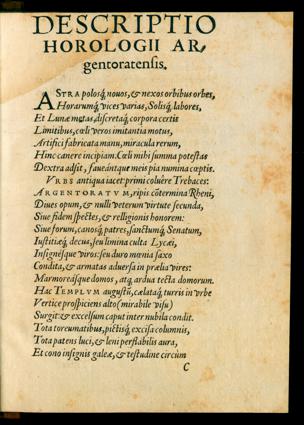 DESCRIPTIO
HOROLOGII AR,
gentoratensis.
ASTRA polosq́, nouos, & nexos orbibus orbes,
Horarumq́, vices varias, Solisq́, labores,
Et Lunæ metas, discretaq́, corpora certis
Limitibus, cœli veros imitantia motus,
Artifici fabricata manu, miracula rerum,
Hinc canere incipiam. Cœli mihi summa potestas
Dextra adsit, faueántque meis pia numina cœptis.
VRBS antiqua iacet: primi coluêre Trebaces:
ARGENTORATVM, ripis côtermina Rheni,
Diues opum, & nulli veterum virtute secunda,
Siue fidem spectes, & relligionis honorem:
Siue forum, canosq́, patres, sanctumq́, Senatum,
Iustitiæq́, decus, seu limina culta Lycæi,
Insignésque viros: seu duro mœnia saxo
Condita, & armatas aduersa in prælia vires:
Marmoreásque domos, atq, ardua tecta domorum.
Hac TEMPLVM augustũ, cælataq́, turris in vrbe
Vertice prospiciens alto (mirabile visu)
Surgit: & excelsum caput inter nubila condit.
Tota toreumatibus, pictisq́, excisa columnis,
Tota patens luci, & leni perflabilis aura,
Et cono insignis galeæ, & testudine circùm
C